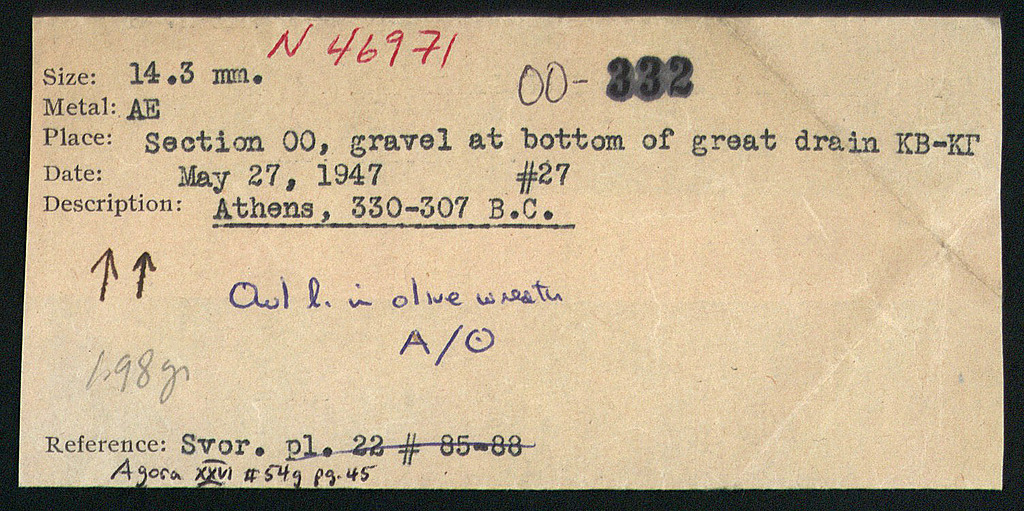 N 46971
Size: 14.3 mm. OO- 332
Metal: AE
Place: Section OO, gravel at bottom of great drain KB-KΓ
Date: May 27, 1947 #27
Description: Athens, 330-307 B.C.
↑↑
Owl l. in olive wreath
A/Θ
1.98gr
Reference: Svor. pl. 22 # 85-88
Agora XXVI #54g pg.45